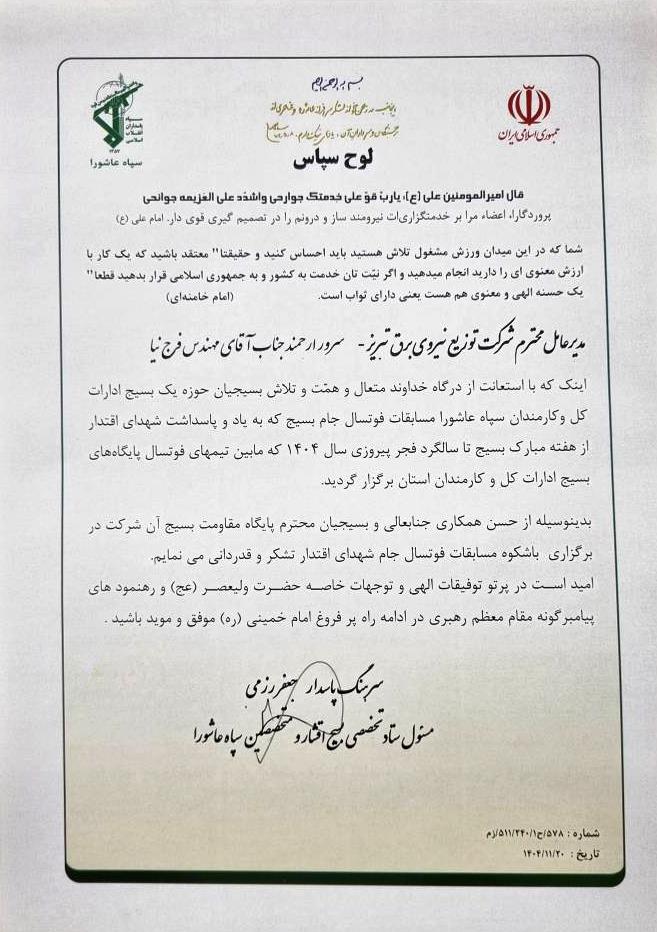 بسم الله الرحمن الرحیم
سپاه
پاسداران
انقلاب
اسلامی
سپاه عاشورا
جمهوری اسلامی ایران
لوح سپاس
قال امیرالمومنین علی (ع): یارب قو علی خدمتک جوارحی واشدد علی العزیمه جوانحی
پروردگارا، اعضاء مرا بر خدمتگزاری‌ات نیرومند ساز و درونم را در تصمیم گیری قوی دار. امام علی (ع)
شما که در این میدان ورزش مشغول تلاش هستید باید احساس کنید و حقیقتا" معتقد باشید که یک کار با
ارزش معنوی ای را دارید انجام میدهید و اگر نیّت تان خدمت به کشور و به جمهوری اسلامی قرار بدهید قطعا"
یک حسنه الهی و معنوی هم هست یعنی دارای ثواب است. (امام خامنه‌ای)
مدیرعامل محترم شرکت توزیع نیروی برق تبریز - سرور ارجمند جناب آقای مهندس فرج نیا
اینک که با استعانت از درگاه خداوند متعال و همّت و تلاش بسیجیان حوزه یک بسیج ادارات
کل وکارمندان سپاه عاشورا مسابقات فوتسال جام بسیج که به یاد و پاسداشت شهدای اقتدار
از هفته مبارک بسیج تا سالگرد فجر پیروزی سال ۱۴۰۴ که مابین تیمهای فوتسال پایگاه‌های
بسیج ادارات کل و کارمندان استان برگزار گردید.
بدینوسیله از حسن همکاری جنابعالی و بسیجیان محترم پایگاه مقاومت بسیج آن شرکت در
برگزاری باشکوه مسابقات فوتسال جام شهدای اقتدار تشکر و قدردانی می نمایم.
امید است در پرتو توفیقات الهی و توجهات خاصه حضرت ولیعصر (عج) و رهنمود های
پیامبرگونه مقام معظم رهبری در ادامه راه پر فروغ امام خمینی (ره) موفق و موید باشید .
سرهنگ پاسدار جعفر رزمی
مسئول ستاد تخصصی بسیج اقشار و متخصصین سپاه عاشورا
شماره : ۵۷۸/ح۵۱۱/۲۴۰/۱/زم
تاریخ : ۱۴۰۴/۱۱/۲۰